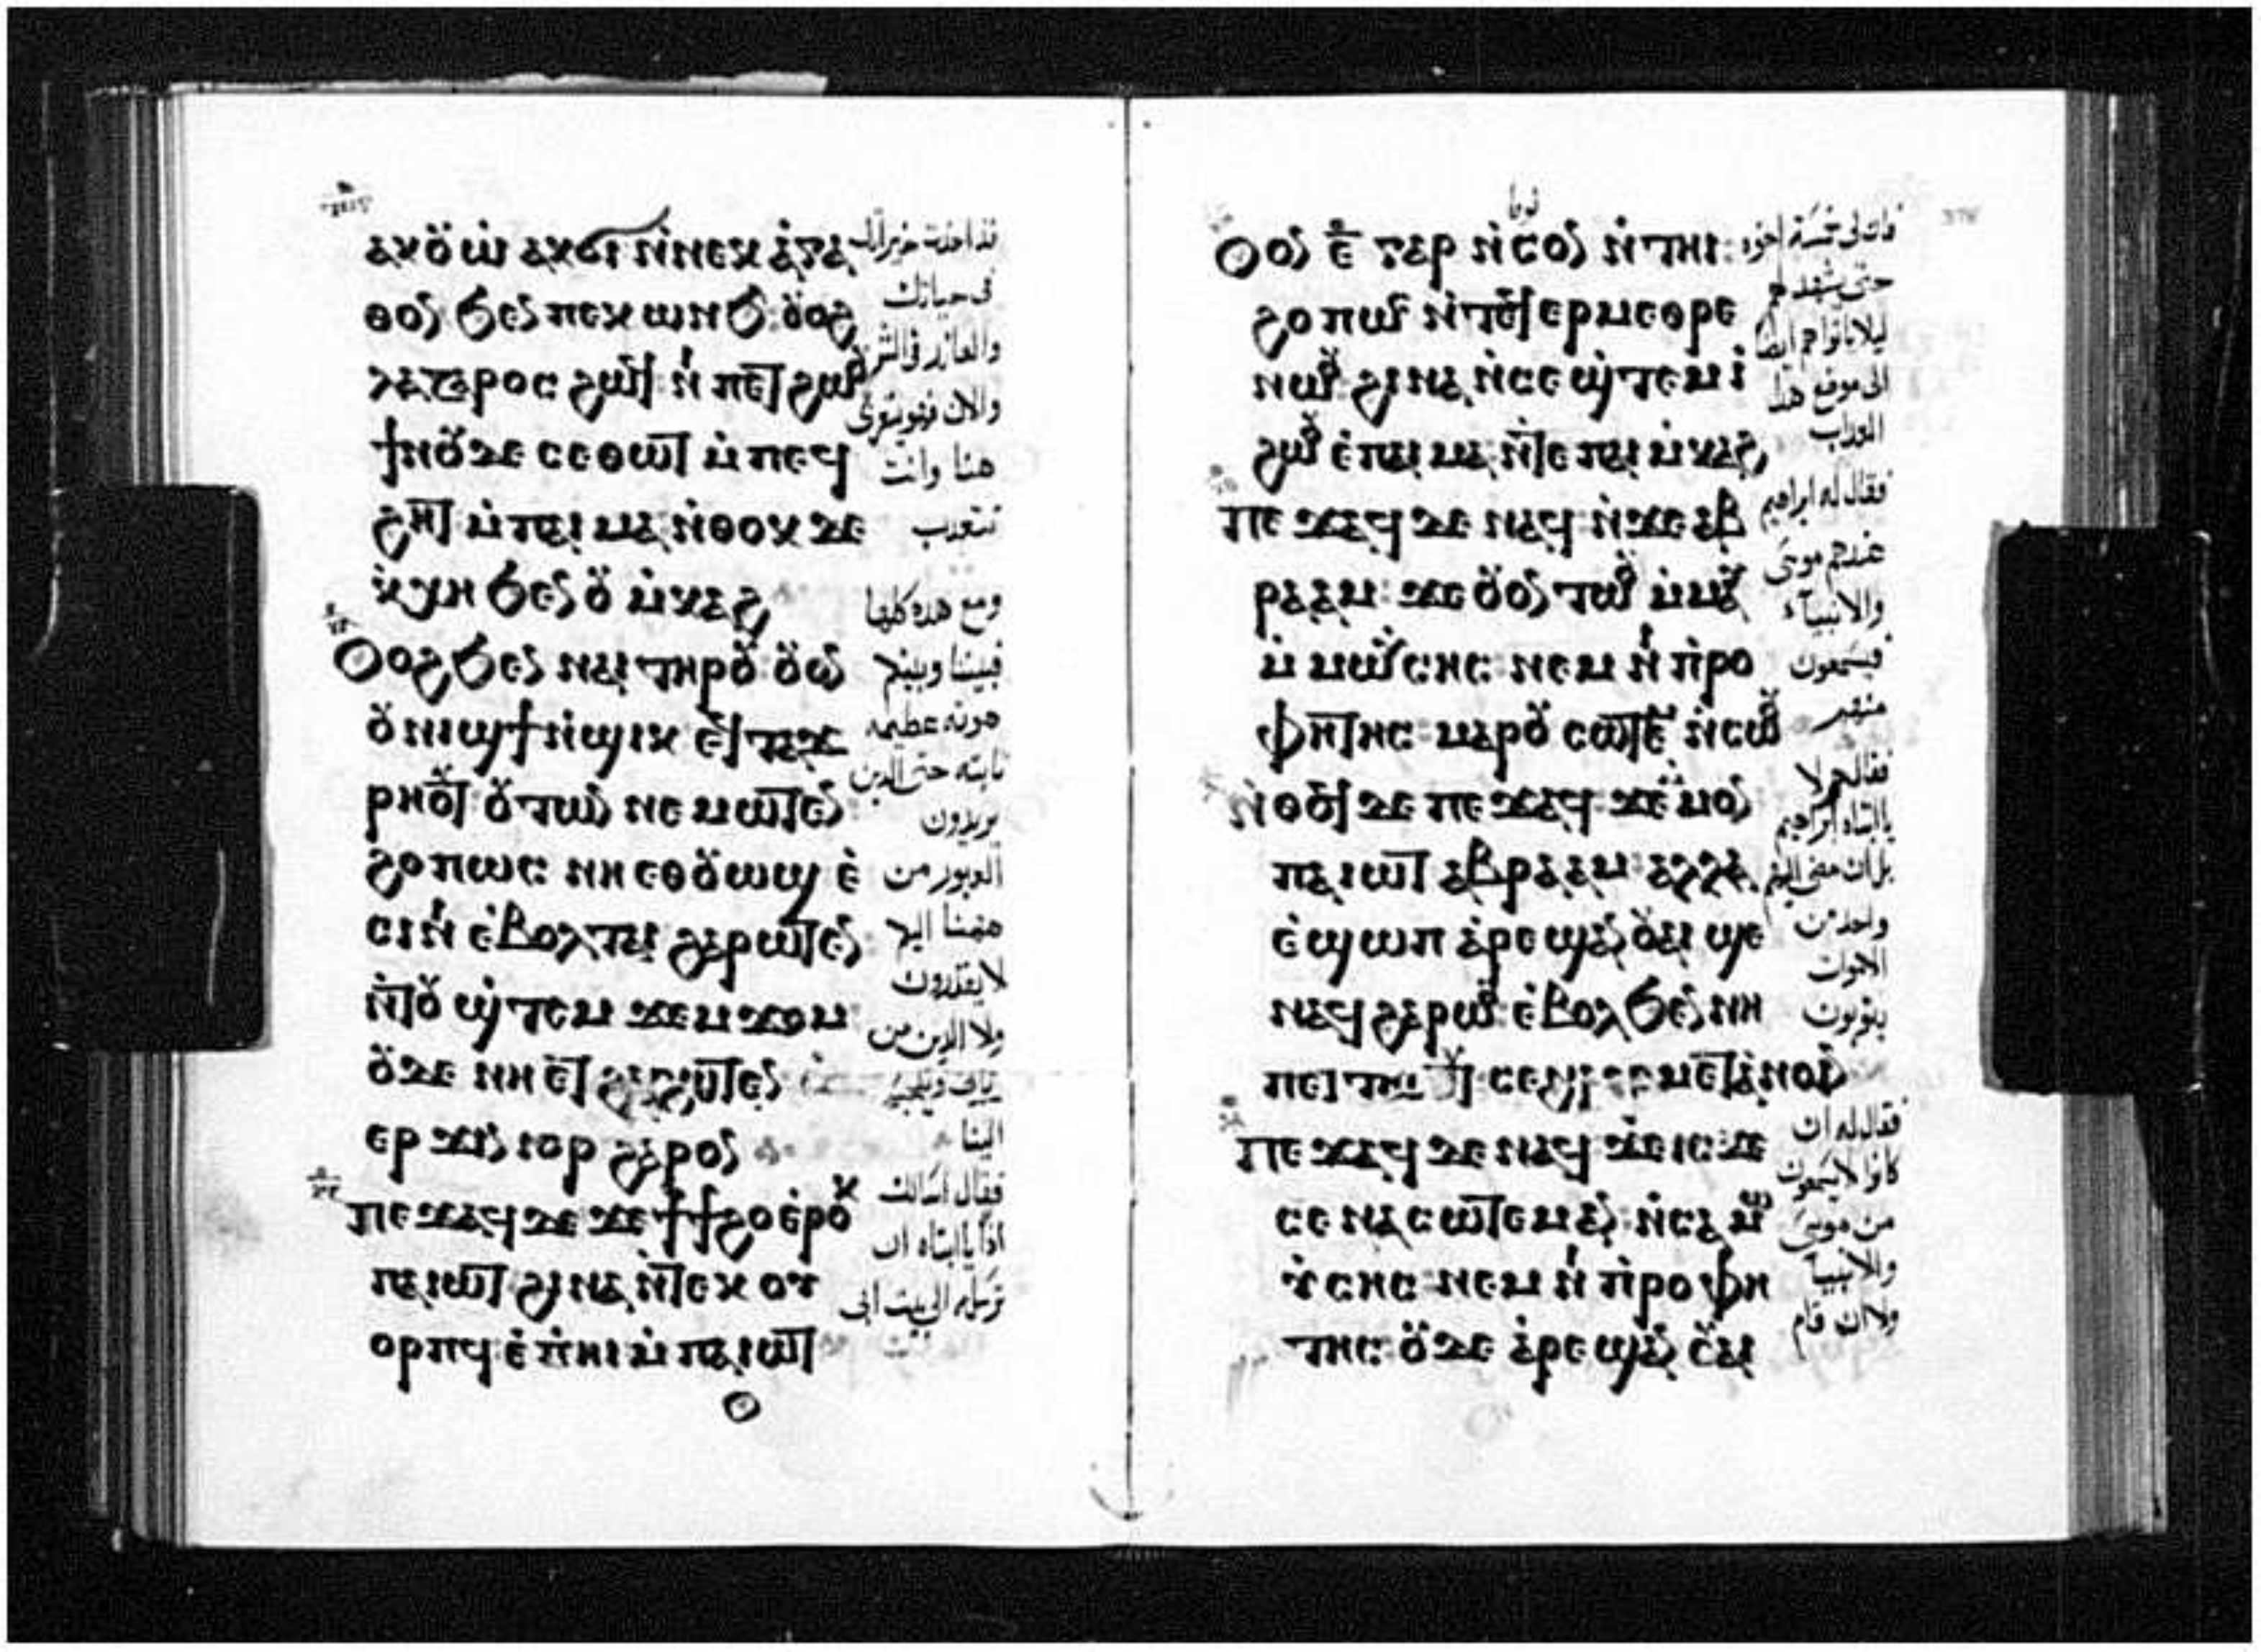 ⲁⲕⲟⲩⲱ ⲁⲕϭⲓ ⲛ̀ⲛⲉⲕ ⲁ̀ⲅⲁ
ⲑⲟⲛ ϧⲉⲛ ⲡⲉⲕⲱⲛϧ ⲟⲩⲟϩ
ⲗⲁⲍⲁⲣⲟⲥ ϩⲱϥ ⲛ̀ⲛⲓ ⲡⲉⲧϩⲱⲟⲩ
ϯⲛⲟⲩⲇⲉ ⲥⲉⲑⲱⲧ ⲙ̀ⲡⲉϥ
ϩⲏⲧ ⲙ̀ⲡⲁⲓⲙⲁ ⲛ̀ⲑⲟⲕ ⲇⲉ
ⲕ̀ⲭⲏ ϧⲉⲛ ⲟⲩ ⲙ̀ⲕⲁϩ
Ⲟⲩⲟϩ ϧⲉⲛ ⲛⲁⲓ ⲧⲏⲣⲟⲩ ⲟⲩⲟⲛ
ⲟⲩⲛⲓϣϯ ⲛ̀ϣⲓⲕ ⲉⲧⲧⲁϫ
ⲣⲏⲟⲩⲧ ⲟⲩⲧⲱⲛ ⲛⲉⲙⲱⲧⲉⲛ
ϩⲟⲡⲱⲥ ⲛⲏ ⲉⲑⲟⲩⲱϣ ⲉ̀
ⲥⲓⲛⲓ ⲉ̀ⲃⲟⲗⲧⲁⲓ ϩⲁⲣⲱⲧⲉⲛ
ⲛ̀ⲧⲟⲩ ϣ̀ⲧⲉⲙ ϫⲉⲙϫⲟⲙ
ⲟⲩⲇⲉ ⲛⲏ ⲉⲧ
ⲉⲣ ϫⲓⲛ ⲓⲟⲣ ϩⲁⲣⲟⲛ
ⲡⲉϫⲁϥ ⲇⲉ ϫⲉ ϯϯϩⲟ ⲉ̀ⲣⲟⲕ
ⲡⲁⲓⲱⲧ ϩⲓⲛⲁ ⲛ̀ⲧⲉⲕ ⲟⲩ
ⲟⲣⲡϥ ⲉ̀ⲡ̀ⲏⲓ ⲙ̀ⲡⲁⲓⲱⲧ
في حياتك
والان فهو يتعزى
هنا وانت
ومع هذه كلها
فبيننا وبينكم
هوته عظيمه
ثابته حتى الدين
يريدون
العبور من
لا يقدرون
ولا الدين من
الينا
فقال اسالك
ترسله الى بيت ابي
Ⲟⲩⲟⲛ ⲉ̅ ⲅⲁⲣ ⲛ̀ⲥⲟⲛ ⲛ̀ⲧⲏⲓ
ϩⲟⲡⲱⲥ ⲛ̀ⲧⲉϥⲉⲣⲙⲉⲑⲣⲉ
ⲛⲱⲟⲩ ϩⲓⲛⲁ ⲛ̀ⲥⲉ ϣ̀ⲧⲉⲙ ⲓ̀
ϩⲱⲟⲩ ⲉ̀ⲡⲁⲓ ⲙⲁ ⲛ̀ⲧⲉ ⲡⲁⲓ ⲙ̀ⲕⲁϩ
ⲡⲉ ϫⲁϥ ⲇⲉ ⲛⲁϥ ⲛ̀ϫⲉ ⲁⲃ
ⲣⲁⲁⲙ ϫⲉ ⲟⲩⲟⲛ ⲧⲱⲟⲩ ⲙ̀ⲙⲁⲩ
ⲙ̀ ⲙⲱⲩⲥⲏⲥ ⲛⲉⲙ ⲛⲓ ⲡ̀ⲣⲟ
ⲫⲏⲧⲏⲥ ⲙⲁⲣⲟⲩ ⲥⲱⲧⲉⲙ ⲛ̀ⲥⲱⲟⲩ
ⲛ̀ⲑⲟϥ ⲇⲉ ⲡⲉ ϫⲁϥ ϫⲉ ⲙ̀ⲙⲟⲛ
ⲡⲁⲓⲱⲧ ⲁⲃⲣⲁⲁⲙ ⲁⲗⲗⲁ
ⲉ̀ϣⲱⲡ ⲁ̀ⲣⲉ ϣⲁⲛ ⲟⲩⲁⲓ ϣⲉ
ⲛⲁϥ ϩⲁⲣⲱⲟⲩ ⲉ̀ⲃⲟⲗϧⲉⲛ ⲛⲏ
ⲡⲉ ϫⲁϥ ⲇⲉ ⲛⲁϥ ϫⲉ ⲓⲥϫⲉ
ⲥⲉ ⲛⲁⲥⲱⲧⲉⲙ ⲁⲛ ⲛ̀ⲥⲁ ⲙⲱ
ⲩ̀ⲥⲏⲥ ⲛⲉⲙ ⲛⲓ ⲡ̀ⲣⲟⲫⲏ
ⲧⲏⲥ ⲟⲩⲇⲉ ⲁ̀ⲣⲉ ϣⲁⲛ ⲟⲩⲁⲓ
لوقا
حتى يشهد لهم
الى موضع هذا
العذاب
فقال له ابراهيم
عندهم موسى
والانبياء
فليسمعون
منهم
واحد من
الاموات
يتوبون
فقال له ان
كانوا لا يسمعون
من موسى
والانبيا
ولا ان قام